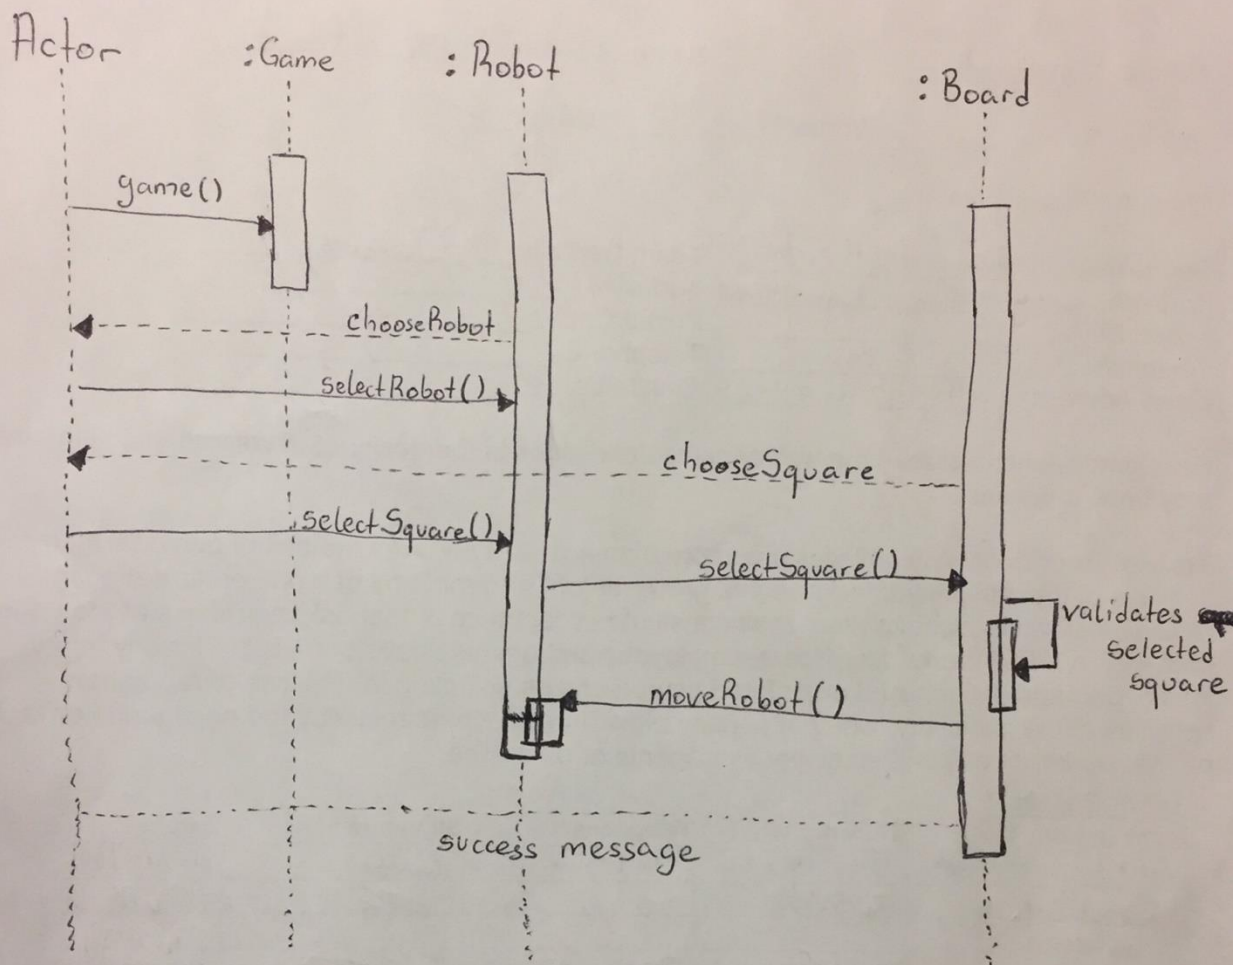 Actor
:Game
: Robot
: Board
game()
chooseRobot
selectRobot()
chooseSquare
selectSquare()
selectSquare()
validates
selected
square
moveRobot()
success message